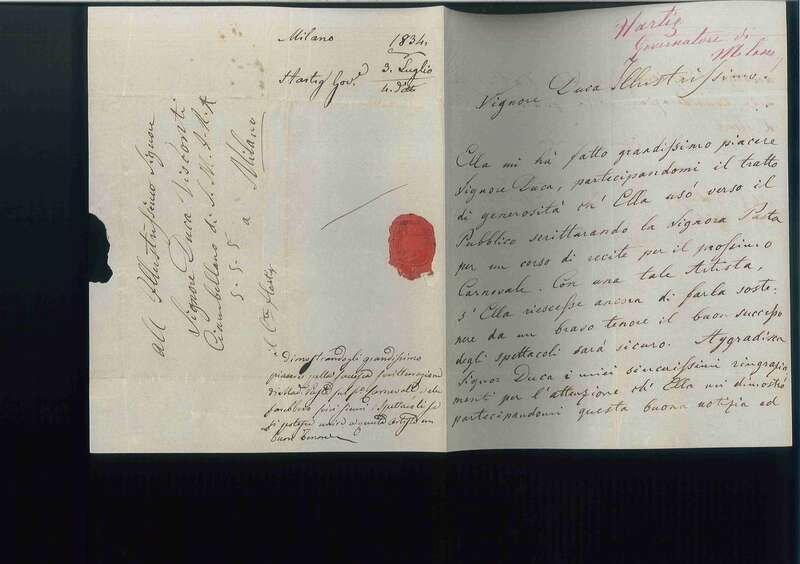 Milano 1834.
3. Luglio
Hartig Gov.e
4. do
all Illustrissimo Signore
Signore Duca Visconti
Ciambellano di S. M. I. R. A.
S. S. S. a Milano
il Cte Hartig
Dimostrandogli grandissimo
piacere nella
Pasta sul po Carnevale, e che
sarebbero Spettacoli se
si potesse unire a questa artista un
buon tenore
Hartig
Governatore di
Milano
Signore Duca Illustrissimo.
Ella mi hà fatto grandissimo piacere
Signore Duca, partecipandomi il tratto
di generosità ch' Ella usò verso il
Pubblico scritturando la Signora Pasta
per un corso di recite per il prossimo
Carnevale. Con una tale Artista,
s' Ella riescesse ancora di farla soste-
nere da un bravo tenore il buon successo
degli spettacoli sarà sicuro. Aggradisca
Signor Duca i miei sincerissimi ringrazia-
menti per l'attenzione ch' Ella mi dimostrò
partecipandomi questa buona notizia ed